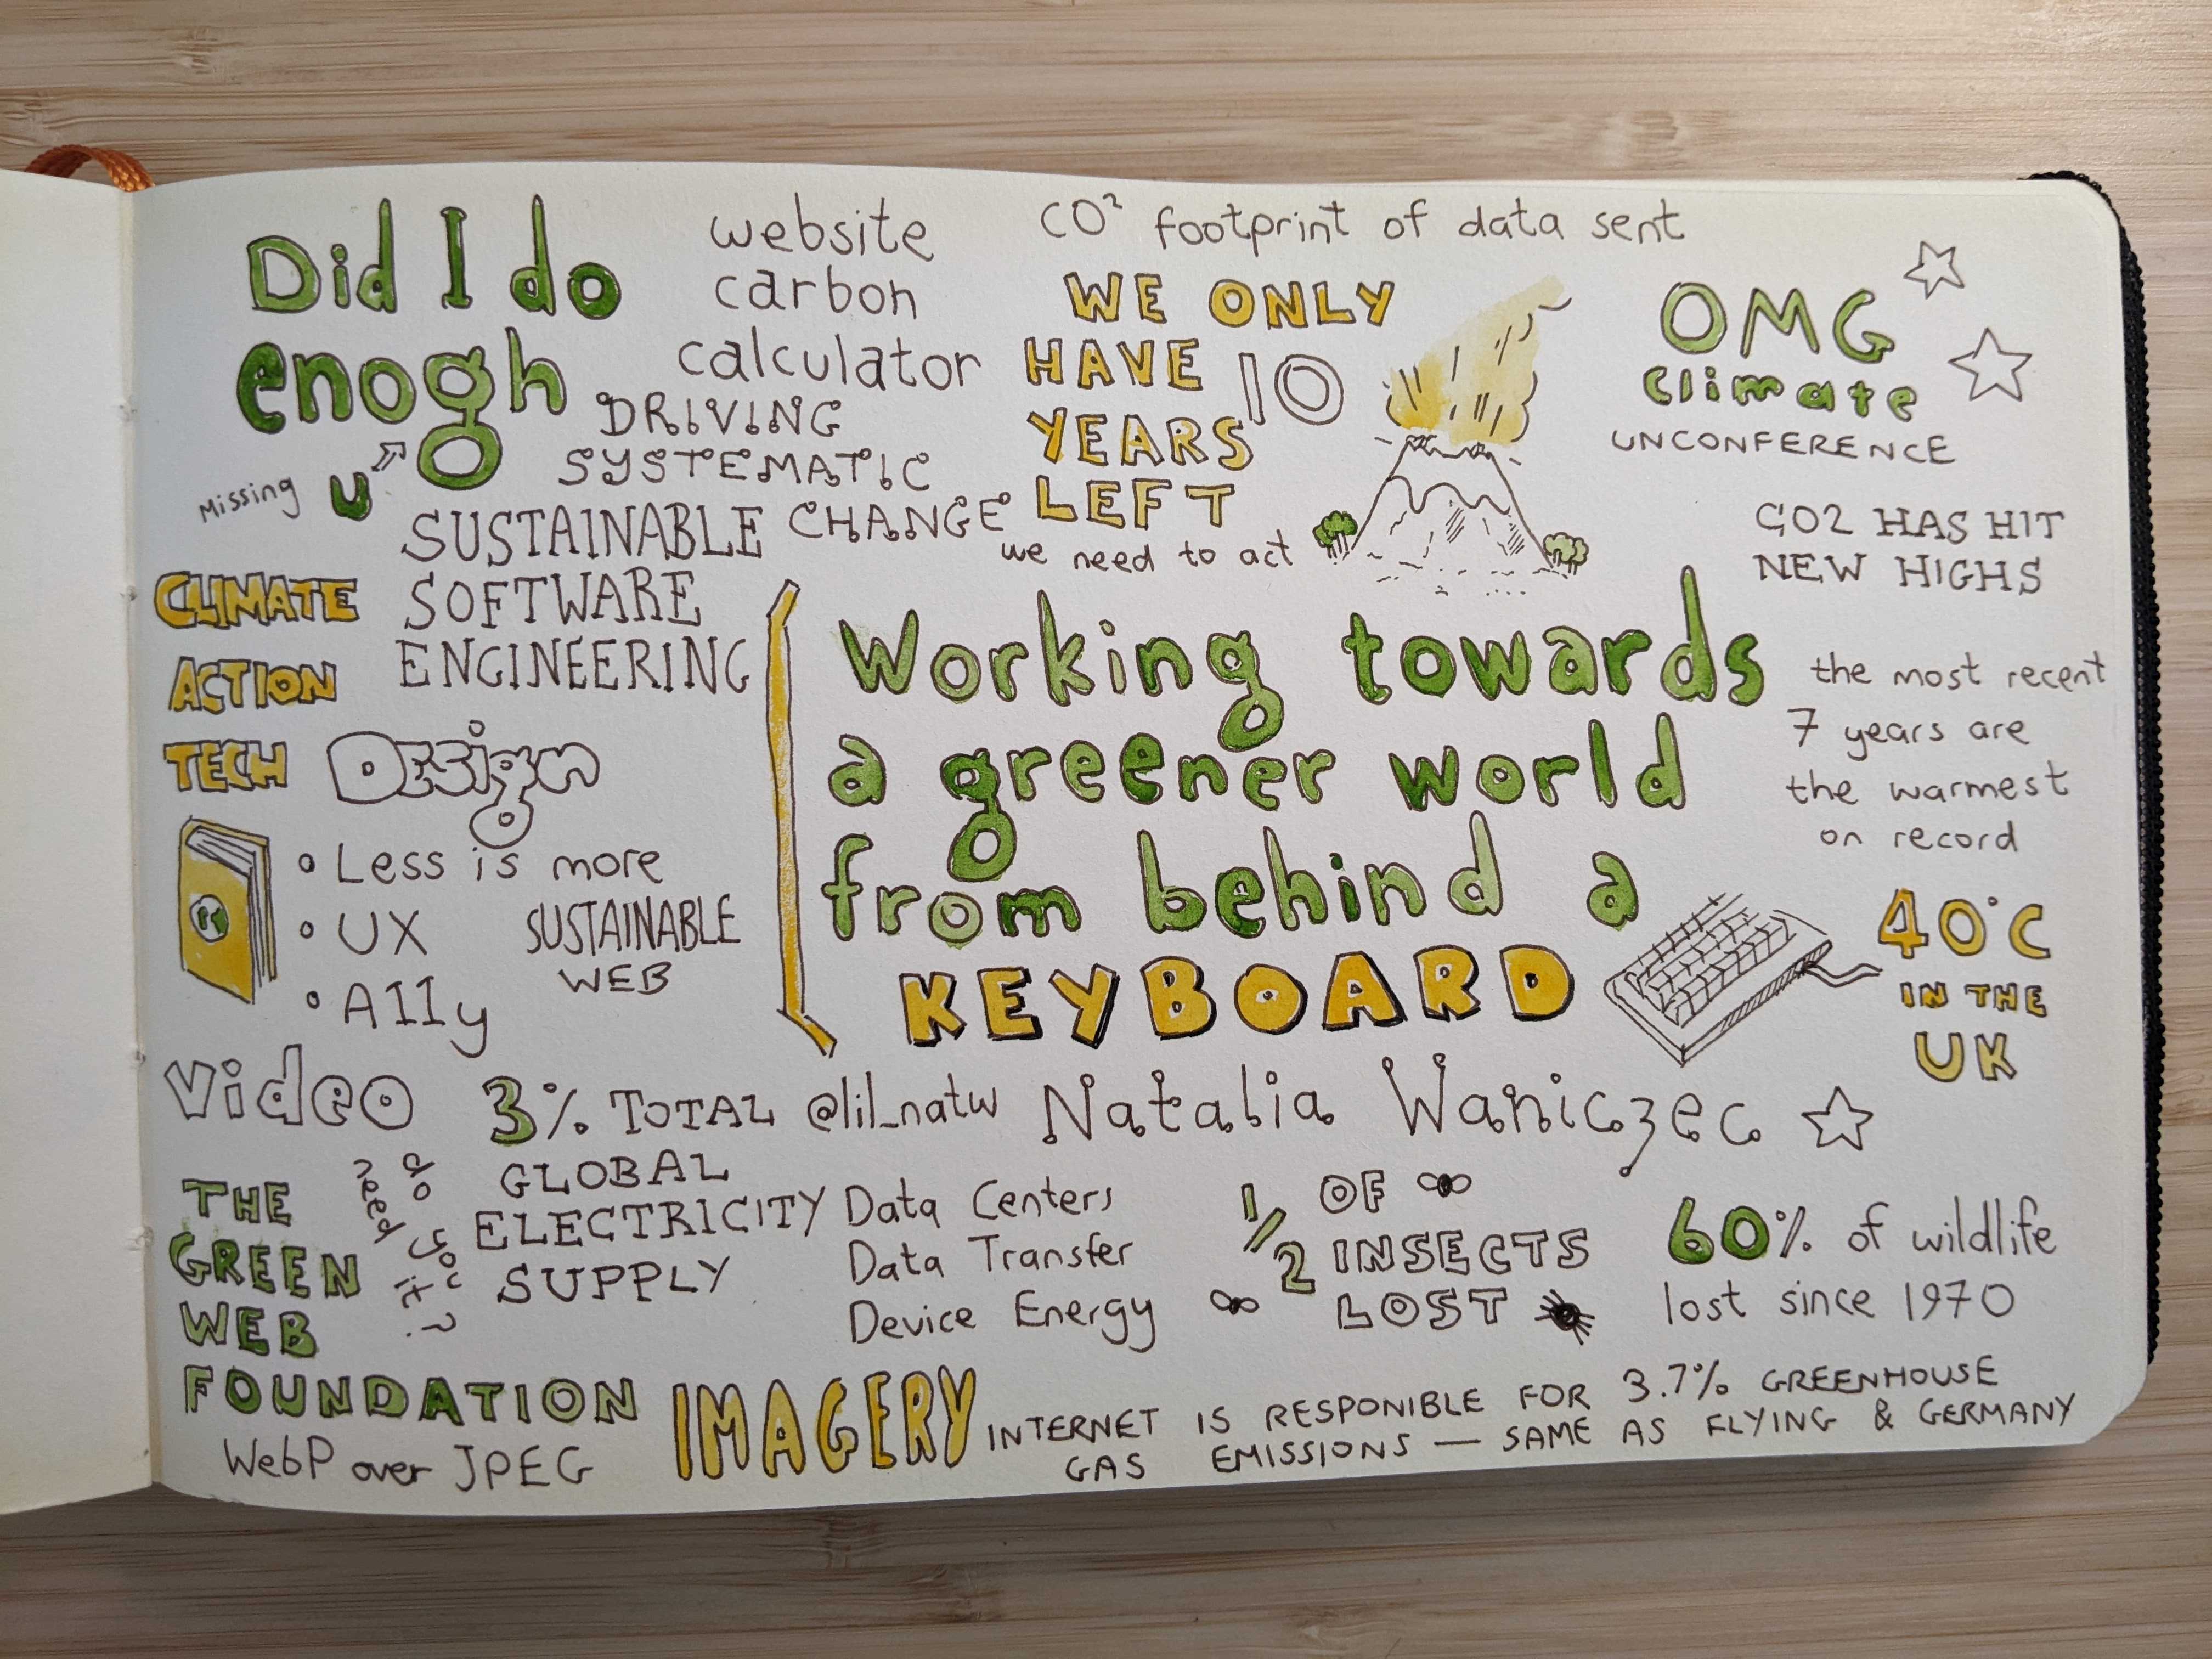 Did I do
enogh
Missing U
website
carbon
calculator
CO² footprint of data sent
WE ONLY
HAVE 10
YEARS
LEFT
we need to act
OMG
climate
UNCONFERENCE
DRIVING
SYSTEMATIC
CHANGE
SUSTAINABLE
SOFTWARE
ENGINEERING
CO2 HAS HIT
NEW HIGHS
CLIMATE
ACTION
TECH
Working towards
a greener world
from behind a
KEYBOARD
the most recent
7 years are
the warmest
on record
DESign
• Less is more
• UX
• A11y
SUSTAINABLE
WEB
40°C
IN THE
UK
Video
do you
need it?
3% TOTAL
GLOBAL
ELECTRICITY
SUPPLY
@lil_natw Natalia Waniczec
THE
GREEN
WEB
FOUNDATION
Data Centers
Data Transfer
Device Energy
1/2 OF
INSECTS
LOST
60% of wildlife
lost since 1970
WebP over JPEG
IMAGERY
INTERNET IS RESPONIBLE FOR 3.7% GREENHOUSE
GAS EMISSIONS — SAME AS FLYING & GERMANY